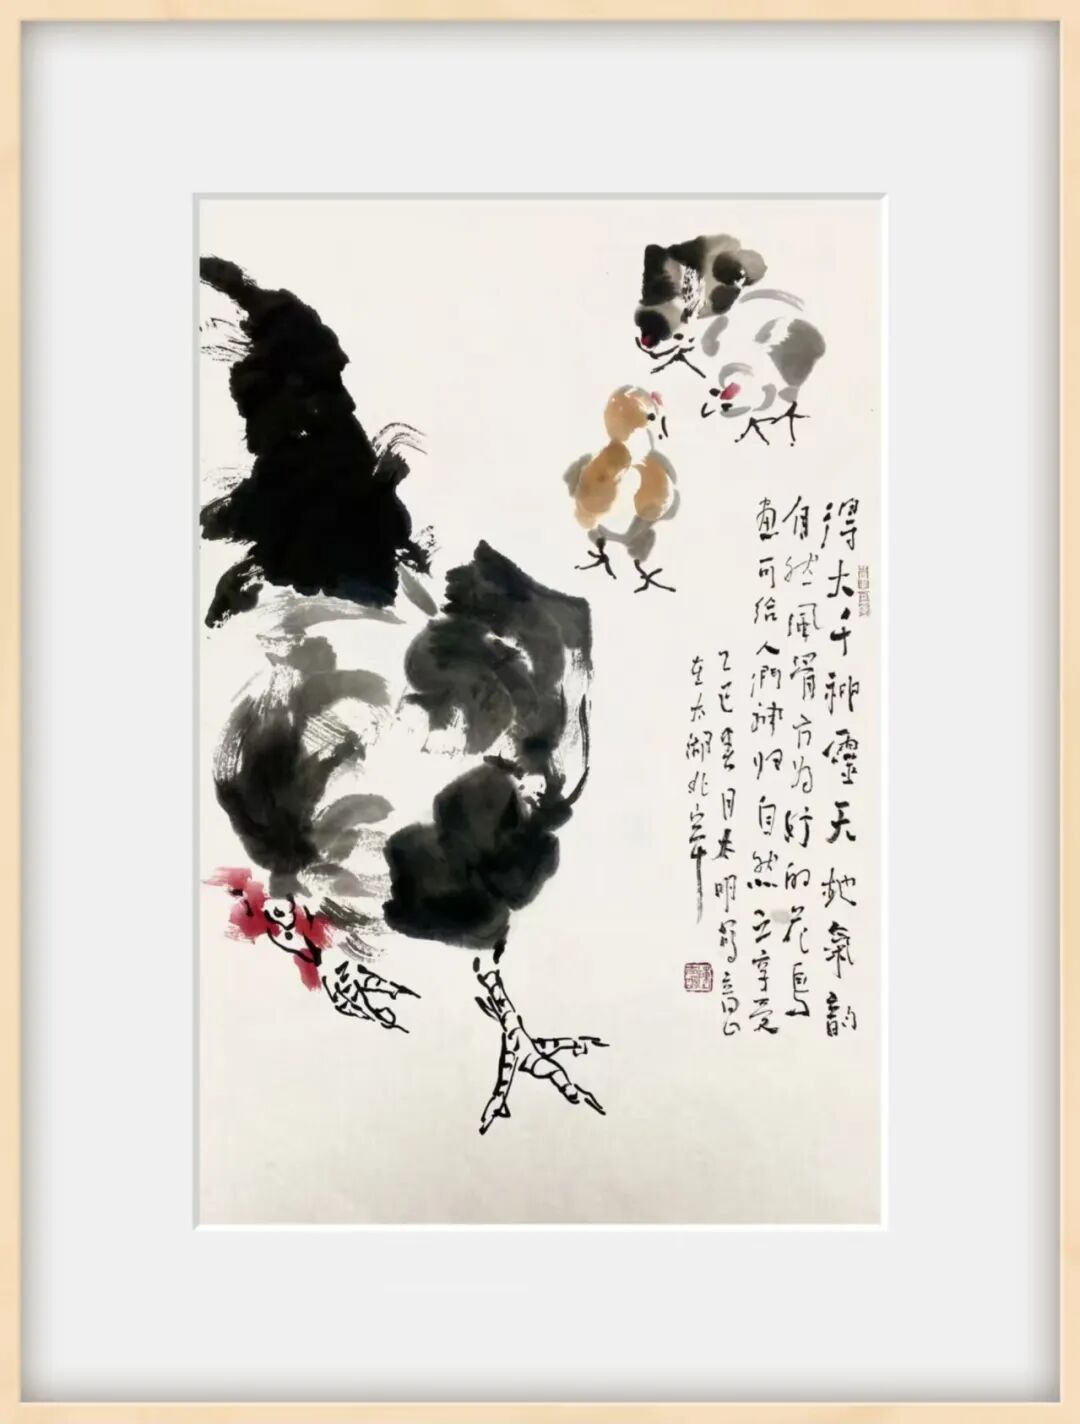 得大千神灵天地氣韵
自然风骨方为好的花鳥
畫可给人們神归自然之享受
乙巳春月木明寫
在太湖北岸